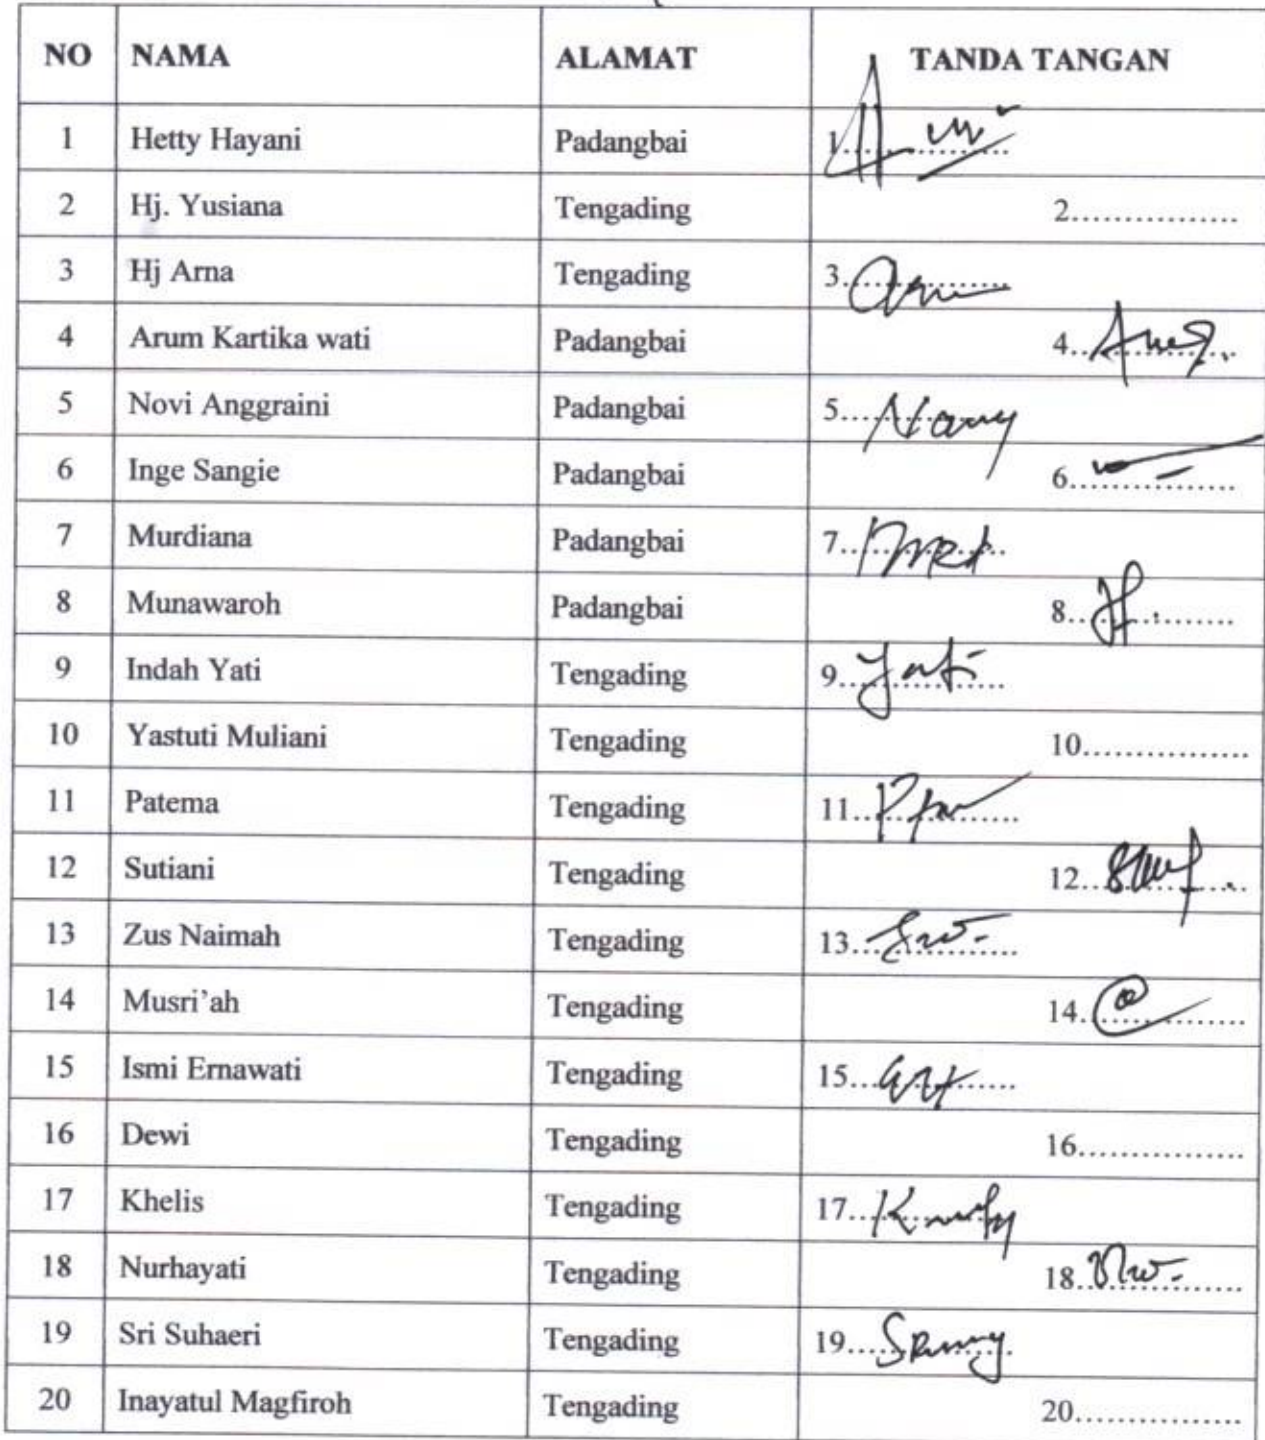 NO NAMA ALAMAT TANDA TANGAN
1 Hetty Hayani Padangbai 1................
2 Hj. Yusiana Tengading 2................
3 Hj Arna Tengading 3................
4 Arum Kartika wati Padangbai 4................
5 Novi Anggraini Padangbai 5................
6 Inge Sangie Padangbai 6................
7 Murdiana Padangbai 7................
8 Munawaroh Padangbai 8................
9 Indah Yati Tengading 9................
10 Yastuti Muliani Tengading 10................
11 Patema Tengading 11................
12 Sutiani Tengading 12................
13 Zus Naimah Tengading 13................
14 Musri’ah Tengading 14................
15 Ismi Ernawati Tengading 15................
16 Dewi Tengading 16................
17 Khelis Tengading 17................
18 Nurhayati Tengading 18................
19 Sri Suhaeri Tengading 19................
20 Inayatul Magfiroh Tengading 20................